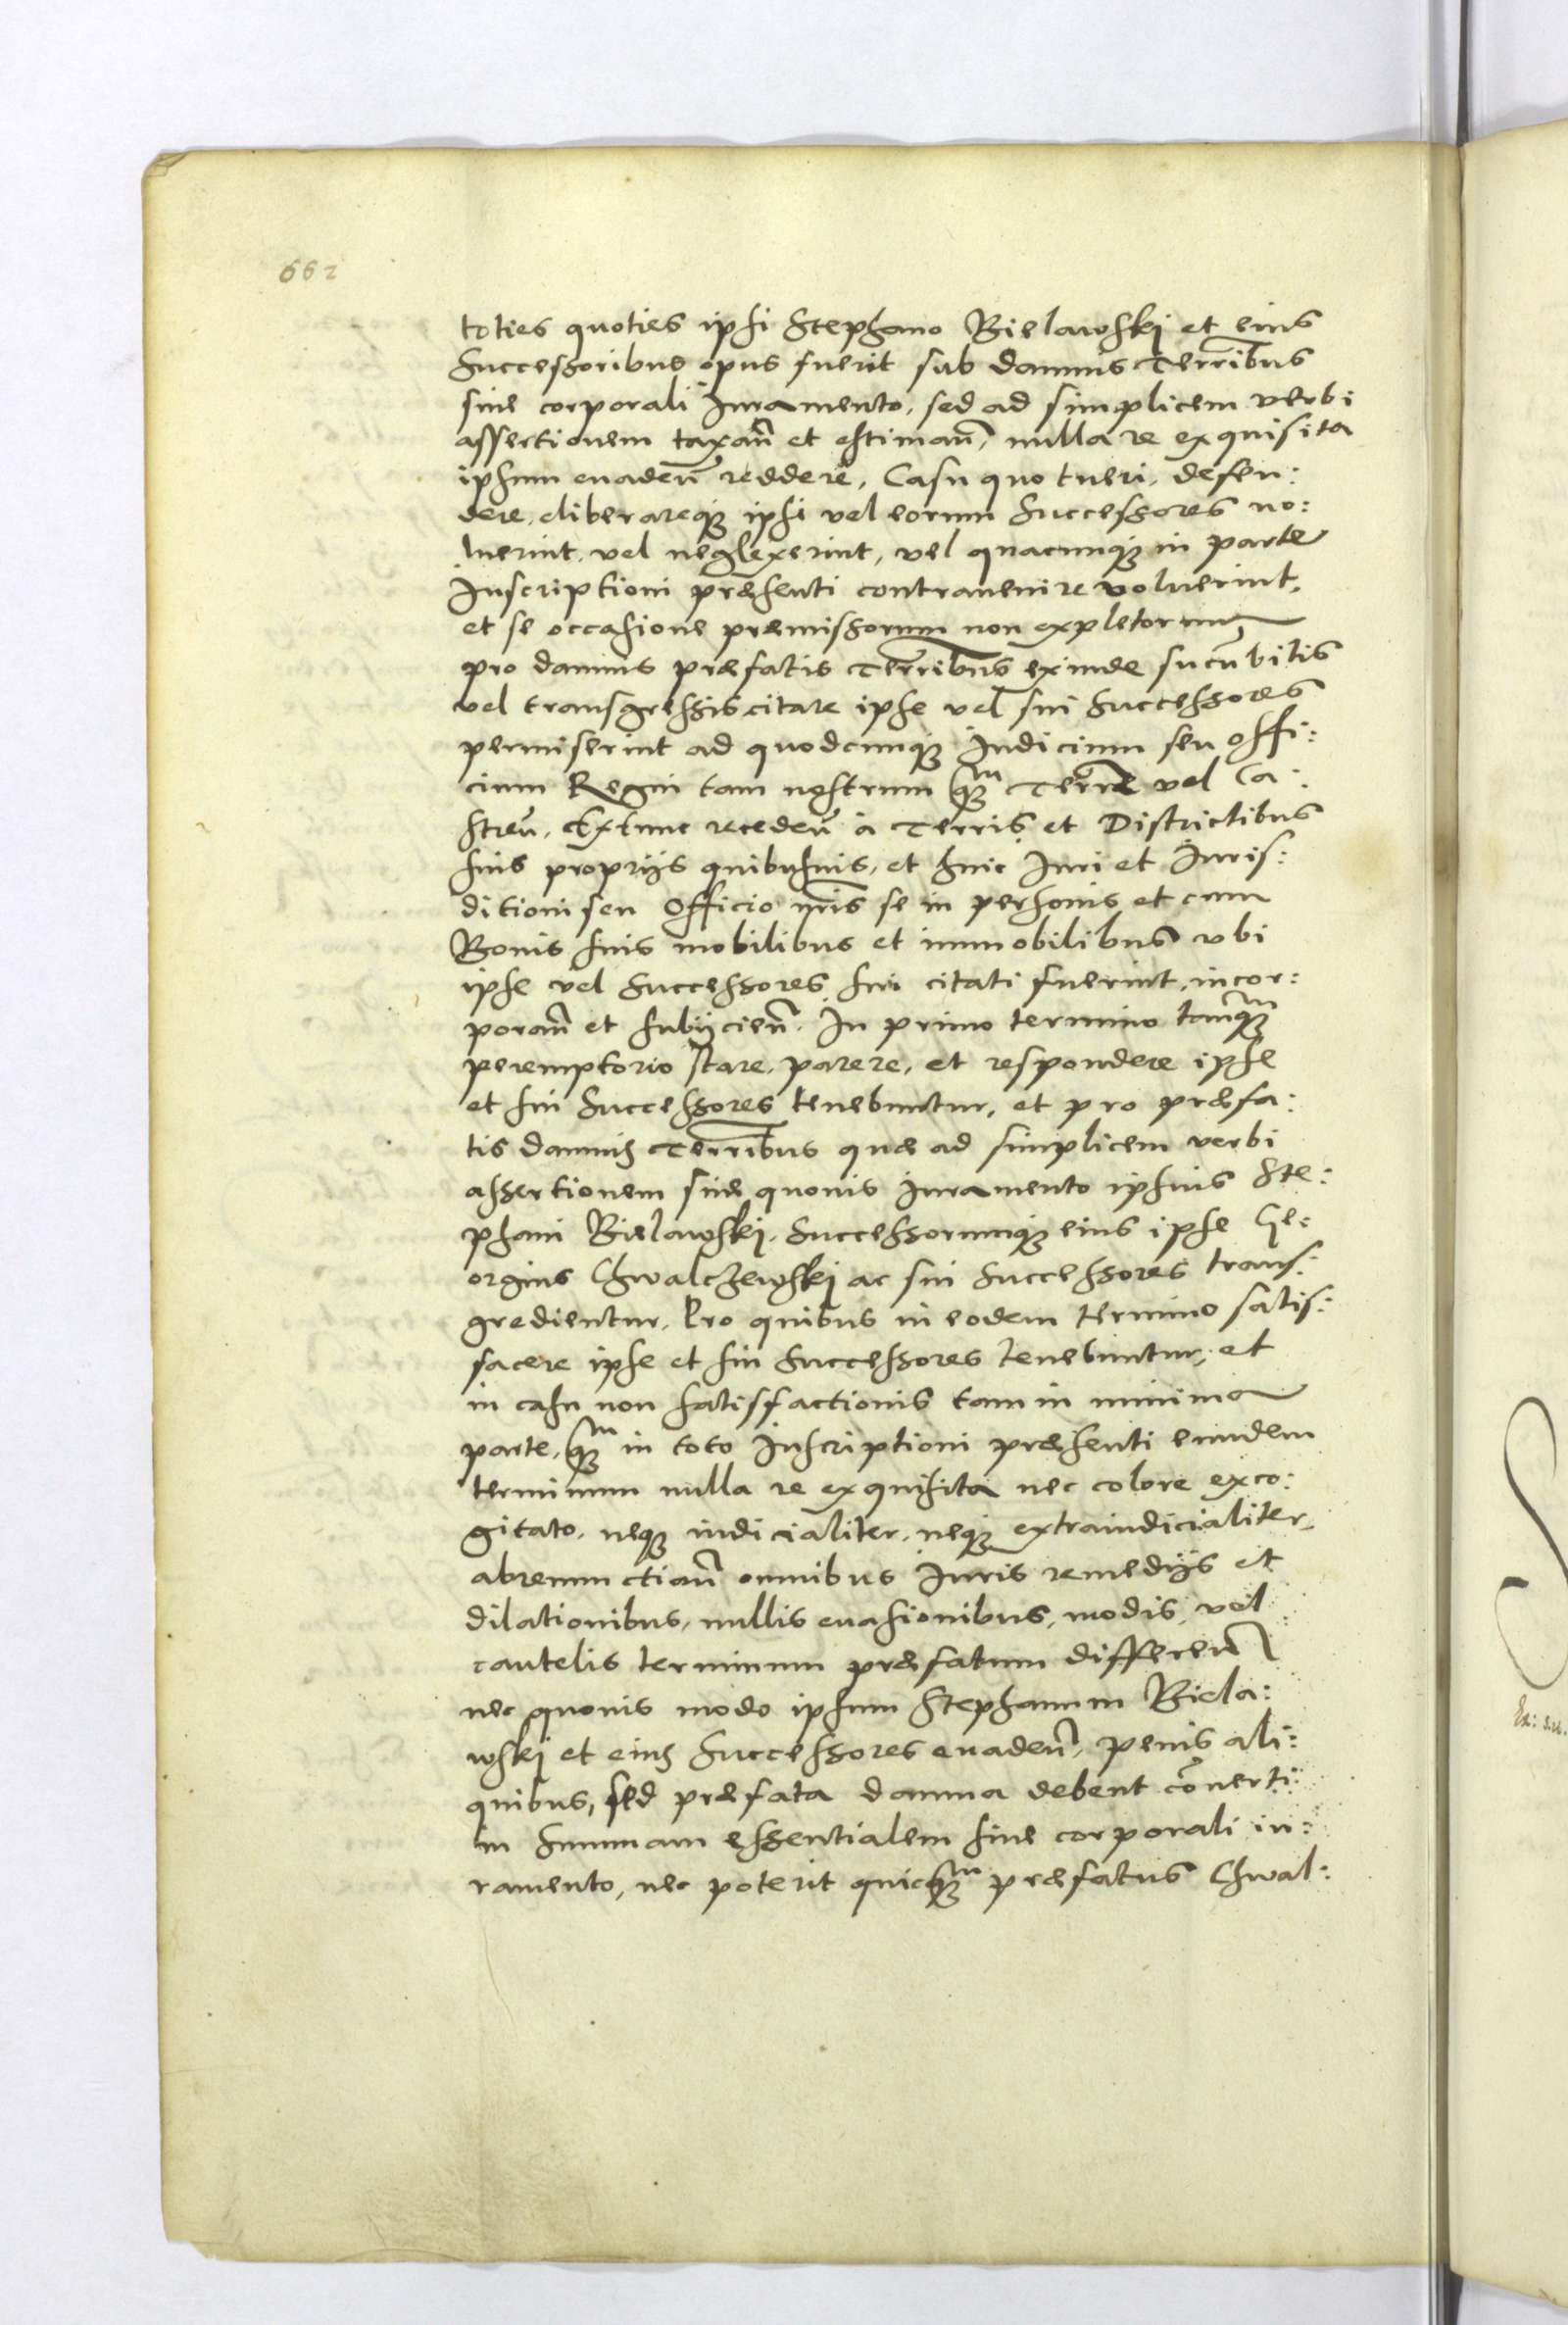 662
toties quoties ipsi Stephano Bielawski et eius
Successoribus opus fuerit sub damnis Terribus
sine corporali Iuramento, sed ad simplicem verbi
assertionem taxan̄ et estiman̄, nulla re exquisita
ipsum evaden̄ reddere, Casu quo tueri, defen:
dere, eliberareq; ipsi vel eorum Successores no:
luerint, vel neglexerint, vel quacunq; in parte
Inscriptioni præsenti contravenire voluerint,
et se occasione præmissorum non expletorum,
pro damnis præfatis Terribus exinde sucūbitis
vel transgressis citare ipse vel sui Successores
permiserint ad quodcunq; Iudicium seu offi:
cium Regni tam nostrum q;m Terrē vel Ca:
stren̄, Extunc receden̄ à Terris et Districtibus
suis proprijs quibusuis, et huic Iuri et Iuris:
ditioni seu Officio nr̄is se in personis et cum
Bonis suis mobilibus et immobilibus vbi
ipse vel Successores sui citati fuerint, incor:
poran̄ et subijcien̄. In primo termino tanq;m
peremptorio stare, parere, et respondere ipse
et sui Successores tenebuntur, et pro præfa:
tis damnis Terribus quæ ad simplicem verbi
assertionem sine quouis Iuramento ipsius Ste:
phani Bielawski, Successorumq; eius ipse Ge:
orgius Chwalczewski ac sui Successores trans:
gredientur, Pro quibus in eodem termino satis:
facere ipse et sui Successores tenebuntur, et
in casu non satisfactionis tam in minima
parte, q;m in toto Inscriptioni præsenti eiusdem
terminum nulla re exquisita nec colore exco:
gitato, neq; iudicialiter, neq; extraiudicialiter,
abrenunctian̄ omnibus Iuris remedijs et
dilationibus, nullis euasionibus, modis, vel
cautelis terminum præfatum differen̄
nec quouis modo ipsum Stephanum Biela:
wski et eius Successores euaden̄, penis ali:
quibus, sed præfata damna debent cōuerti
in Summam essentialem sine corporali iu:
ramento, nec poterit quicq;m præfatus Chwal: